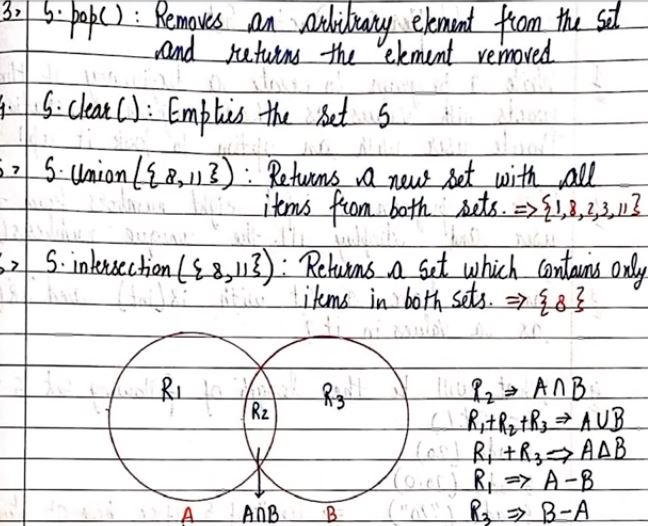 3> S.pop() : Removes an arbitrary element from the set
and returns the element removed
S.clear() : Empties the set S
S.union({8,11}) : Returns a new set with all
items from both sets. => {1,8,2,3,11}
S.intersection({8,11}) : Returns a set which contains only
items in both sets. => {8}
R1 R2 R3
R2 => A∩B
R1+R2+R3 => A∪B
R1 + R3 => AΔB
R1 => A-B
R3 => B-A
A A∩B B